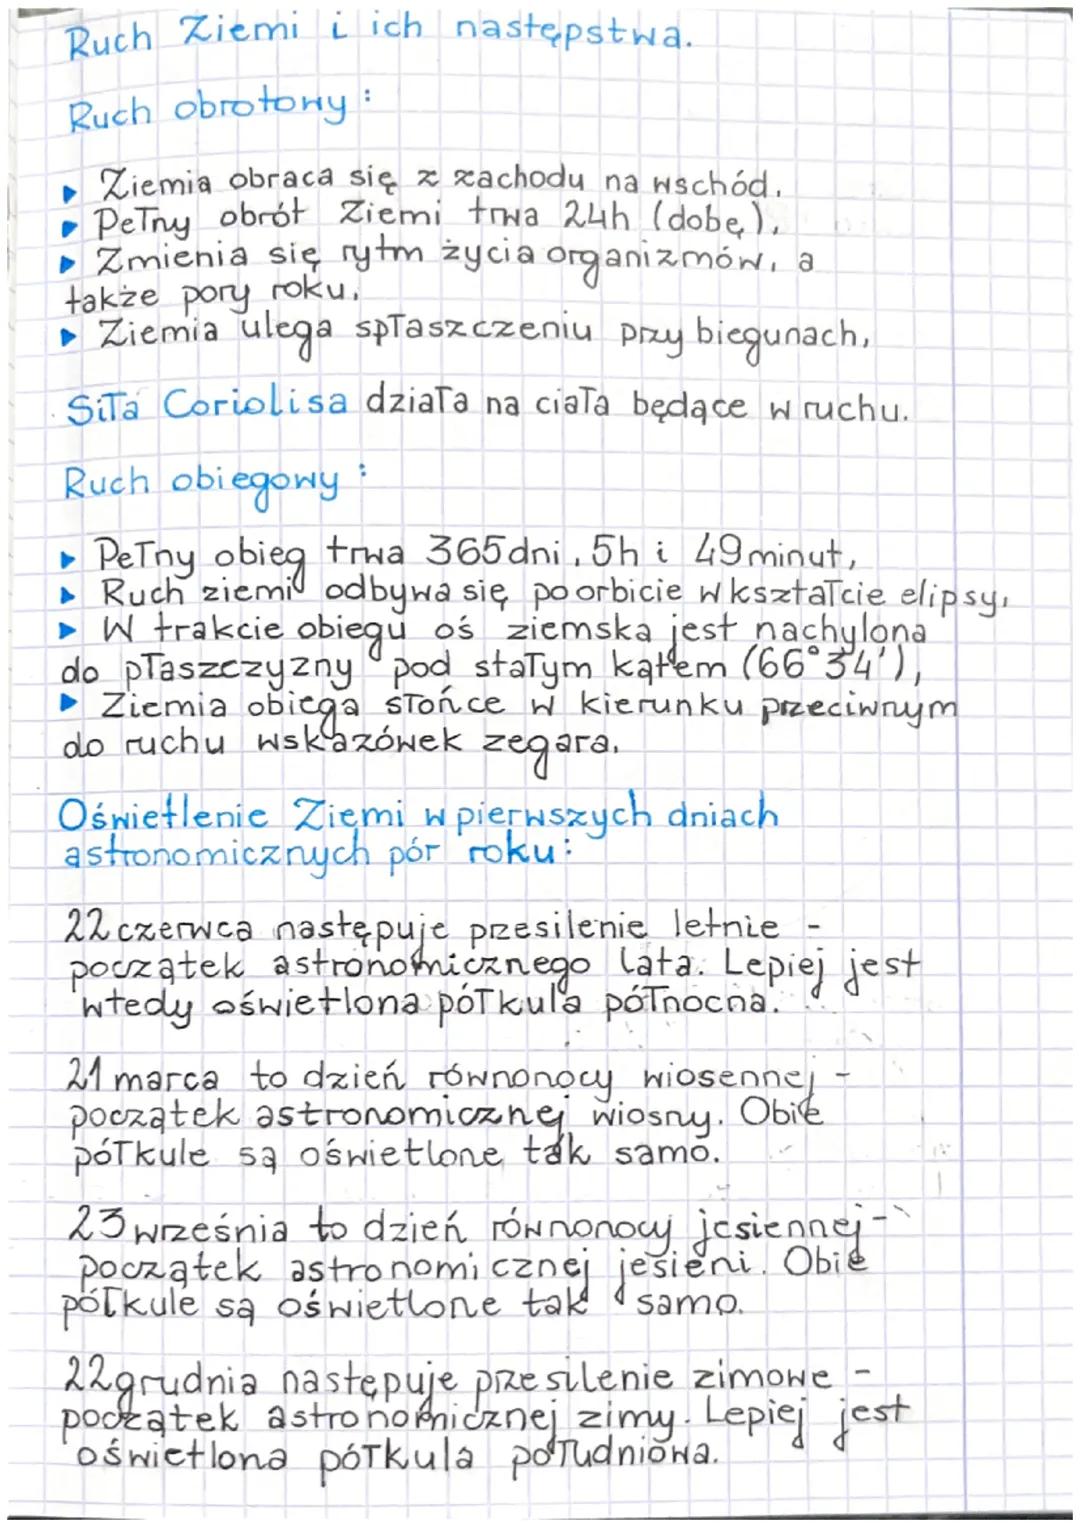 Ruch Ziemi i ich następstwa.
Ruch obrotowy:
Ziemia obraca się z zachodu na wschód.
Pełny obrót Ziemi trwa 24h (dobę),
Zmienia się rytm życia organizmów, a
także pory roku.
Ziemia ulega spłaszczeniu przy biegunach,
Siła Coriolisa działa na ciała będące w ruchu.
Ruch obiegowy:
Pełny obieg trwa 365 dni, 5h i 49 minut,
Ruch ziemi odbywa się po orbicie w kształcie elipsy,
W trakcie obiegu oś ziemska jest nachylona
do płaszczyzny pod stałym kątem (66°34'),
Ziemia obiega słońce w kierunku przeciwnym
do ruchu wskazówek zegara.
Oświetlenie Ziemi w pierwszych dniach
astronomicznych pór roku:
22 czerwca następuje przesilenie letnie -
początek astronomicznego lata. Lepiej jest
wtedy oświetlona półkula północna.
21 marca to dzień równonocy wiosennej -
początek astronomicznej wiosny. Obie
półkule są oświetlone tak samo.
23 września to dzień równonocy jesiennej -
początek astronomicznej jesieni. Obie
półkule są oświetlone tak samo.
22 grudnia następuje przesilenie zimowe -
początek astronomicznej zimy. Lepiej jest
oświetlona półkula południowa.